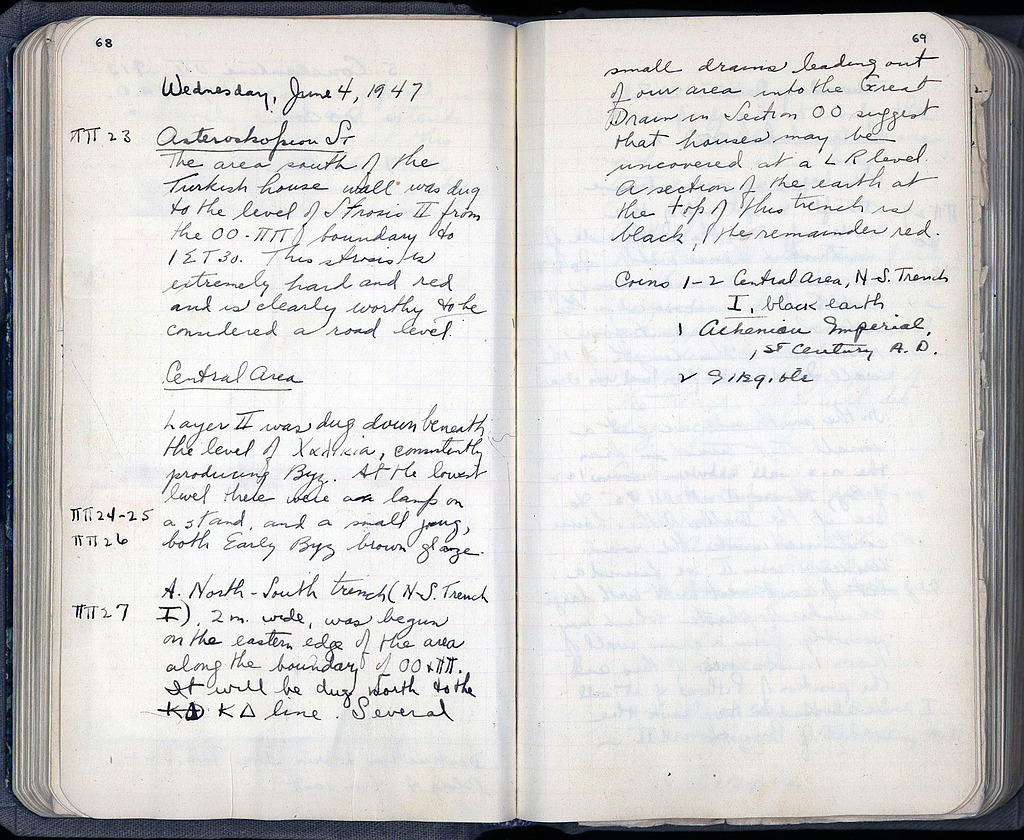 68
Wednesday, June 4, 1947
ΠΠ 23 Asteroskopion St
The area south of the
Turkish house wall was dug
to the level of Strosis II from
the OO-ΠΠ boundary to
1 Σ T 30. This strosis is
extremely hard and red
and is clearly worthy to be
considered a road level.
Central Area
Layer II was dug down beneath
the level of consistently
producing Byz. At the lowest
level there were a lamp on
ΠΠ24-25 a stand, and a small jug,
ΠΠ26 both Early Byz brown glaze.
A. North-South trench (N-S. Trench
ΠΠ27 I), 2 m. wide, was begun
on the eastern edge of the area
along the boundary of OO + ΠΠ.
It will be dug north to the
KΔ line. Several
69
small drains leading out
of our area into the Great
Drain in Section OO suggest
that houses may be
uncovered at a L R level.
A section of the earth at
the top of this trench is
black, the remainder red.
Coins 1-2 Central Area, N-S. Trench
I, black earth
1 Athenian Imperial,
1st Century A.D.
2 Illegible